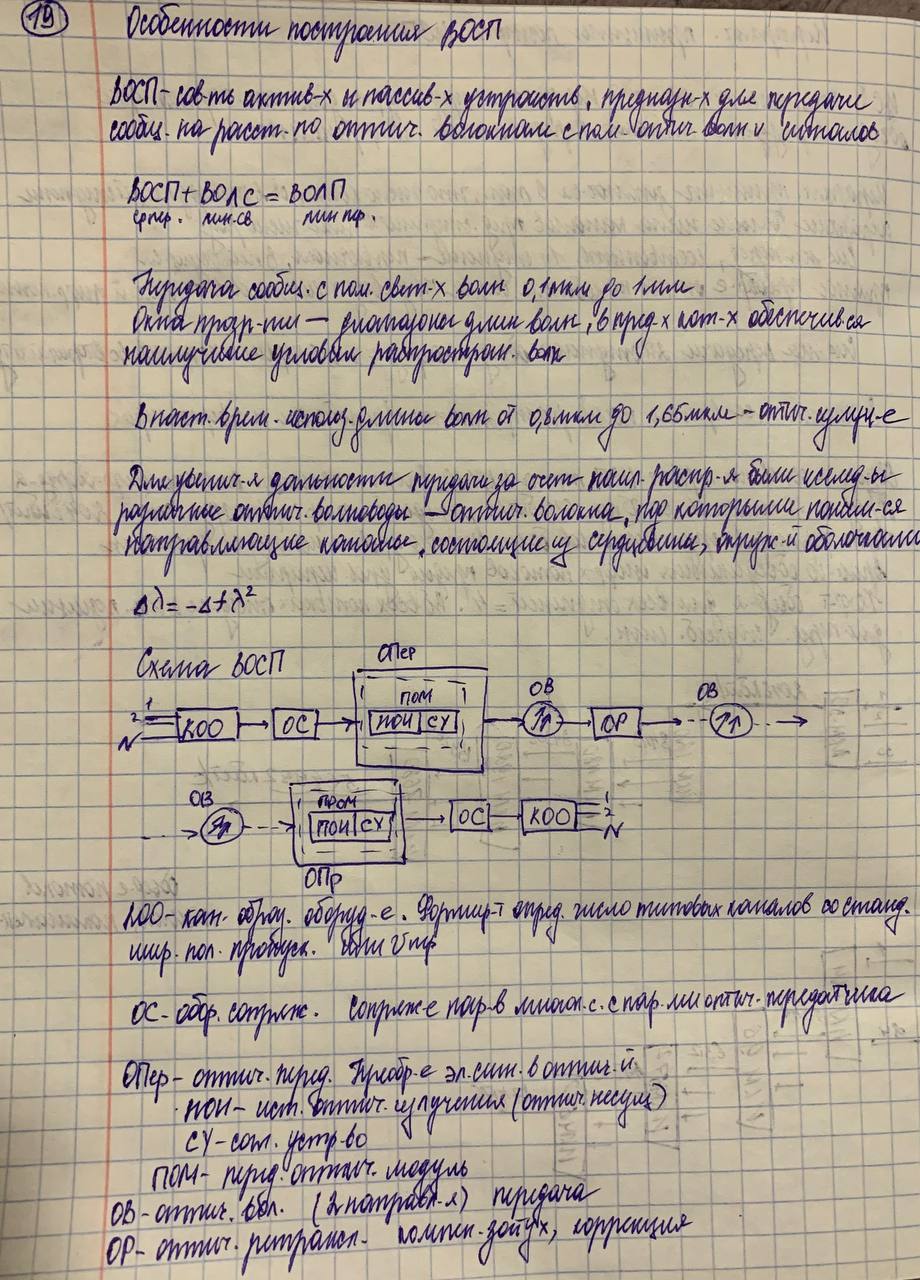 19
Особенности построения ВОСП
ВОСП - сов-ть актив-х и пассив-х устройств, предназн-х для передачи
сообщ. на расст. по оптич. волокнам с пом. оптич волн и сигналов
ВОСП + ВОЛС = ВОЛП
ср.пер. лин.св. лин пер.
Передача сообщ. с пом. свет-х волн 0,1мкм до 1мм.
Окна прозр-ти — диапазоны длин волн, в пред-х кот-х обеспечив-ся
наилучшие условия распростран. волн
В наст. врем. использ. длины волн от 0,8мкм до 1,65мкм - оптич. излуч-е
Для увелич-я дальности передачи за счет наил. распр-я были исслед-ы
различные оптич. волноводы — оптич. волокна, под которыми поним-ся
направляющие каналы, состоящие из сердцевины, окруж-й оболочками
Δλ = -Δfλ²
Схема ВОСП
ОПер
1 2 N КОО ОС ПОМ ПОИ СУ ОВ ОР ОВ
ОВ ПРОМ ПОИ СУ ОС КОО 1 2 N
ОПр
КОО - кан. образ. оборуд-е. Формир-т опред. число типовых каналов со станд.
шир. пол. пропуск. или Vпр
ОС - обор. сопряж. Сопряж-е пар-в с. с пар-ми оптич. передатчика
ОПер - оптич. перед. Преобр-е эл. сигн. в оптич-й
ПОИ - ист. оптич. излучения (оптич. несущ)
СУ - согл. устр-во
ПОМ - перед. оптич. модуль
ОВ - оптич. вол. (2 направл-я) передача
ОР - оптич. ретрансл. компен. затух, коррекция